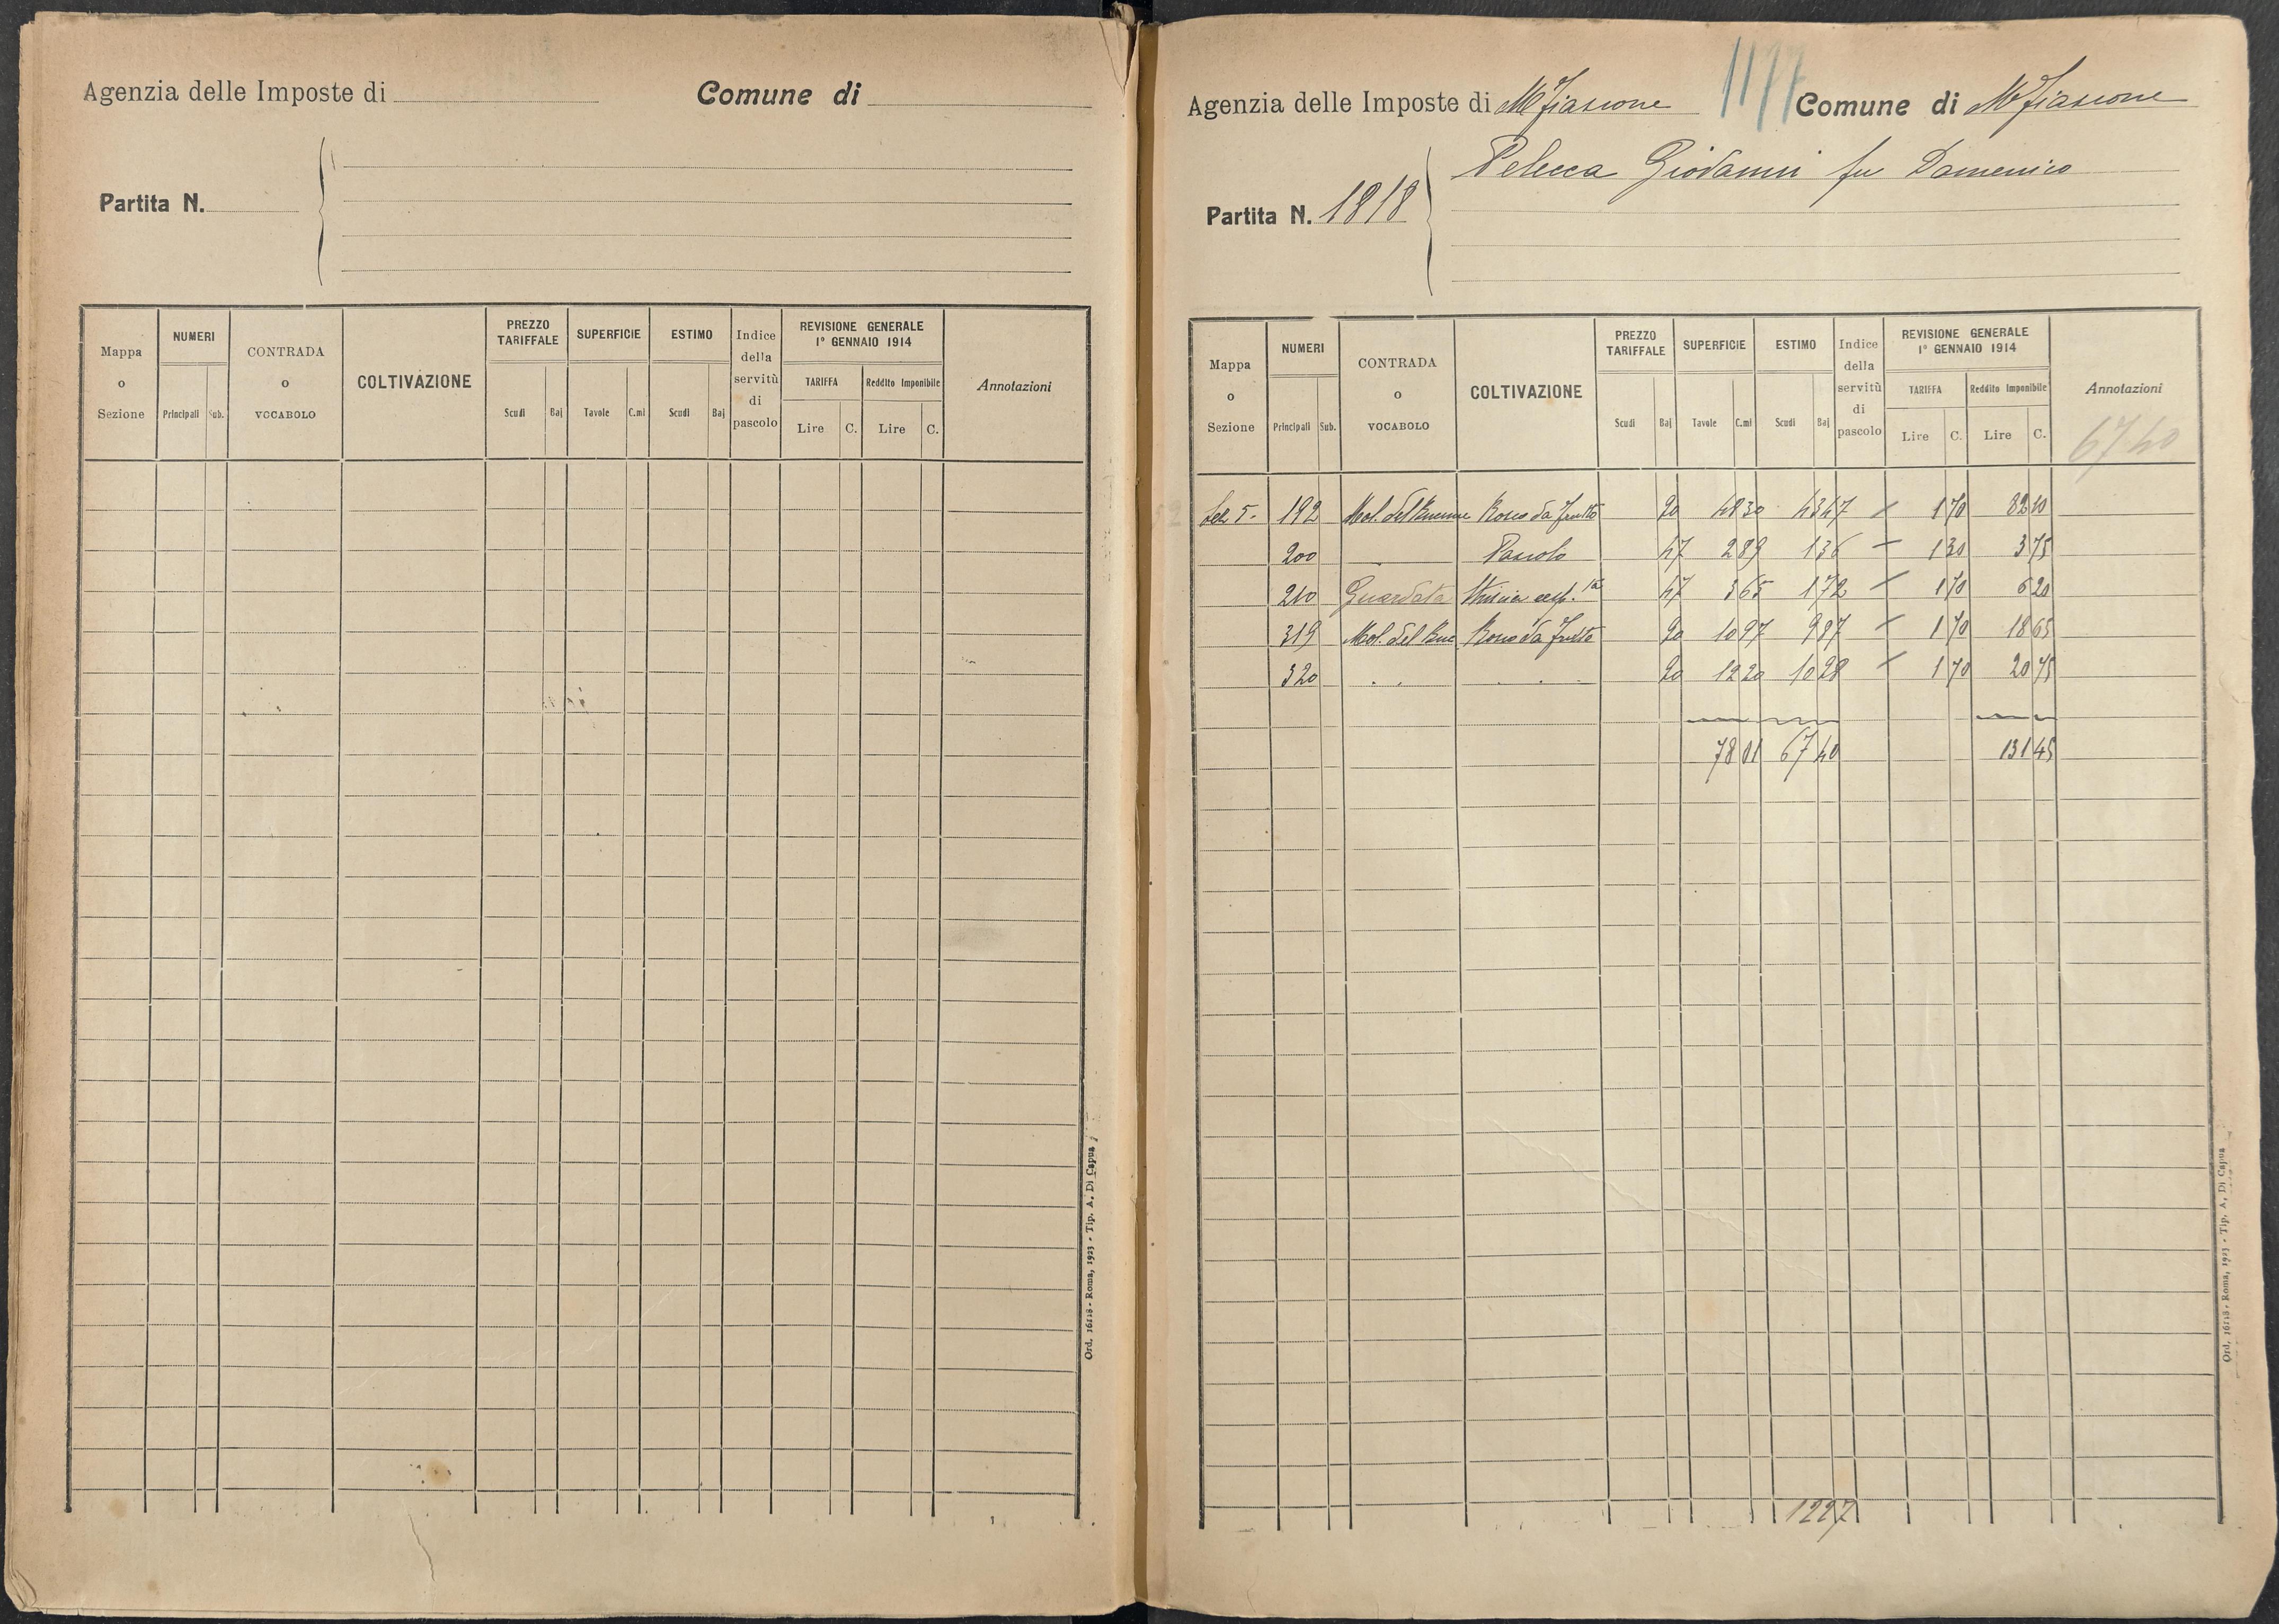 Agenzia delle Imposte di Comune di
Partita N.
Mappa o Sezione NUMERI Principali Sub. CONTRADA o VOCABOLO COLTIVAZIONE PREZZO TARIFFALE Scudi Baj SUPERFICIE Tavole C.mi ESTIMO Scudi Baj Indice della servitù di pascolo REVISIONE GENERALE 1° GENNAIO 1914 TARIFFA Lire C. Reddito Imponibile Lire C. Annotazioni
Ord. 16118 - Roma, 1923 - Tip. A. Di Capua
1
1177
Agenzia delle Imposte di M Fiascone Comune di M Fiascone
Partita N. 1818
Pelecca Giovanni fu Domenico
Mappa o Sezione NUMERI Principali Sub. CONTRADA o VOCABOLO COLTIVAZIONE PREZZO TARIFFALE Scudi Baj SUPERFICIE Tavole C.mi ESTIMO Scudi Baj Indice della servitù di pascolo REVISIONE GENERALE 1° GENNAIO 1914 TARIFFA Lire C. Reddito Imponibile Lire C. Annotazioni
67 40
Sez 5. 192 Mol. del da frutto 90 48 30 43 47 1 70 82 10
200 Pascolo 47 2 89 1 36 1 30 3 75
210 Guardata 47 3 65 1 72 1 70 6 20
319 Mol. del da frutto 90 10 97 9 87 1 70 18 65
320 90 12 20 10 98 1 70 20 75
78 01 67 40 131 45
1227
Ord. 16118 - Roma, 1923 - Tip. A. Di Capua